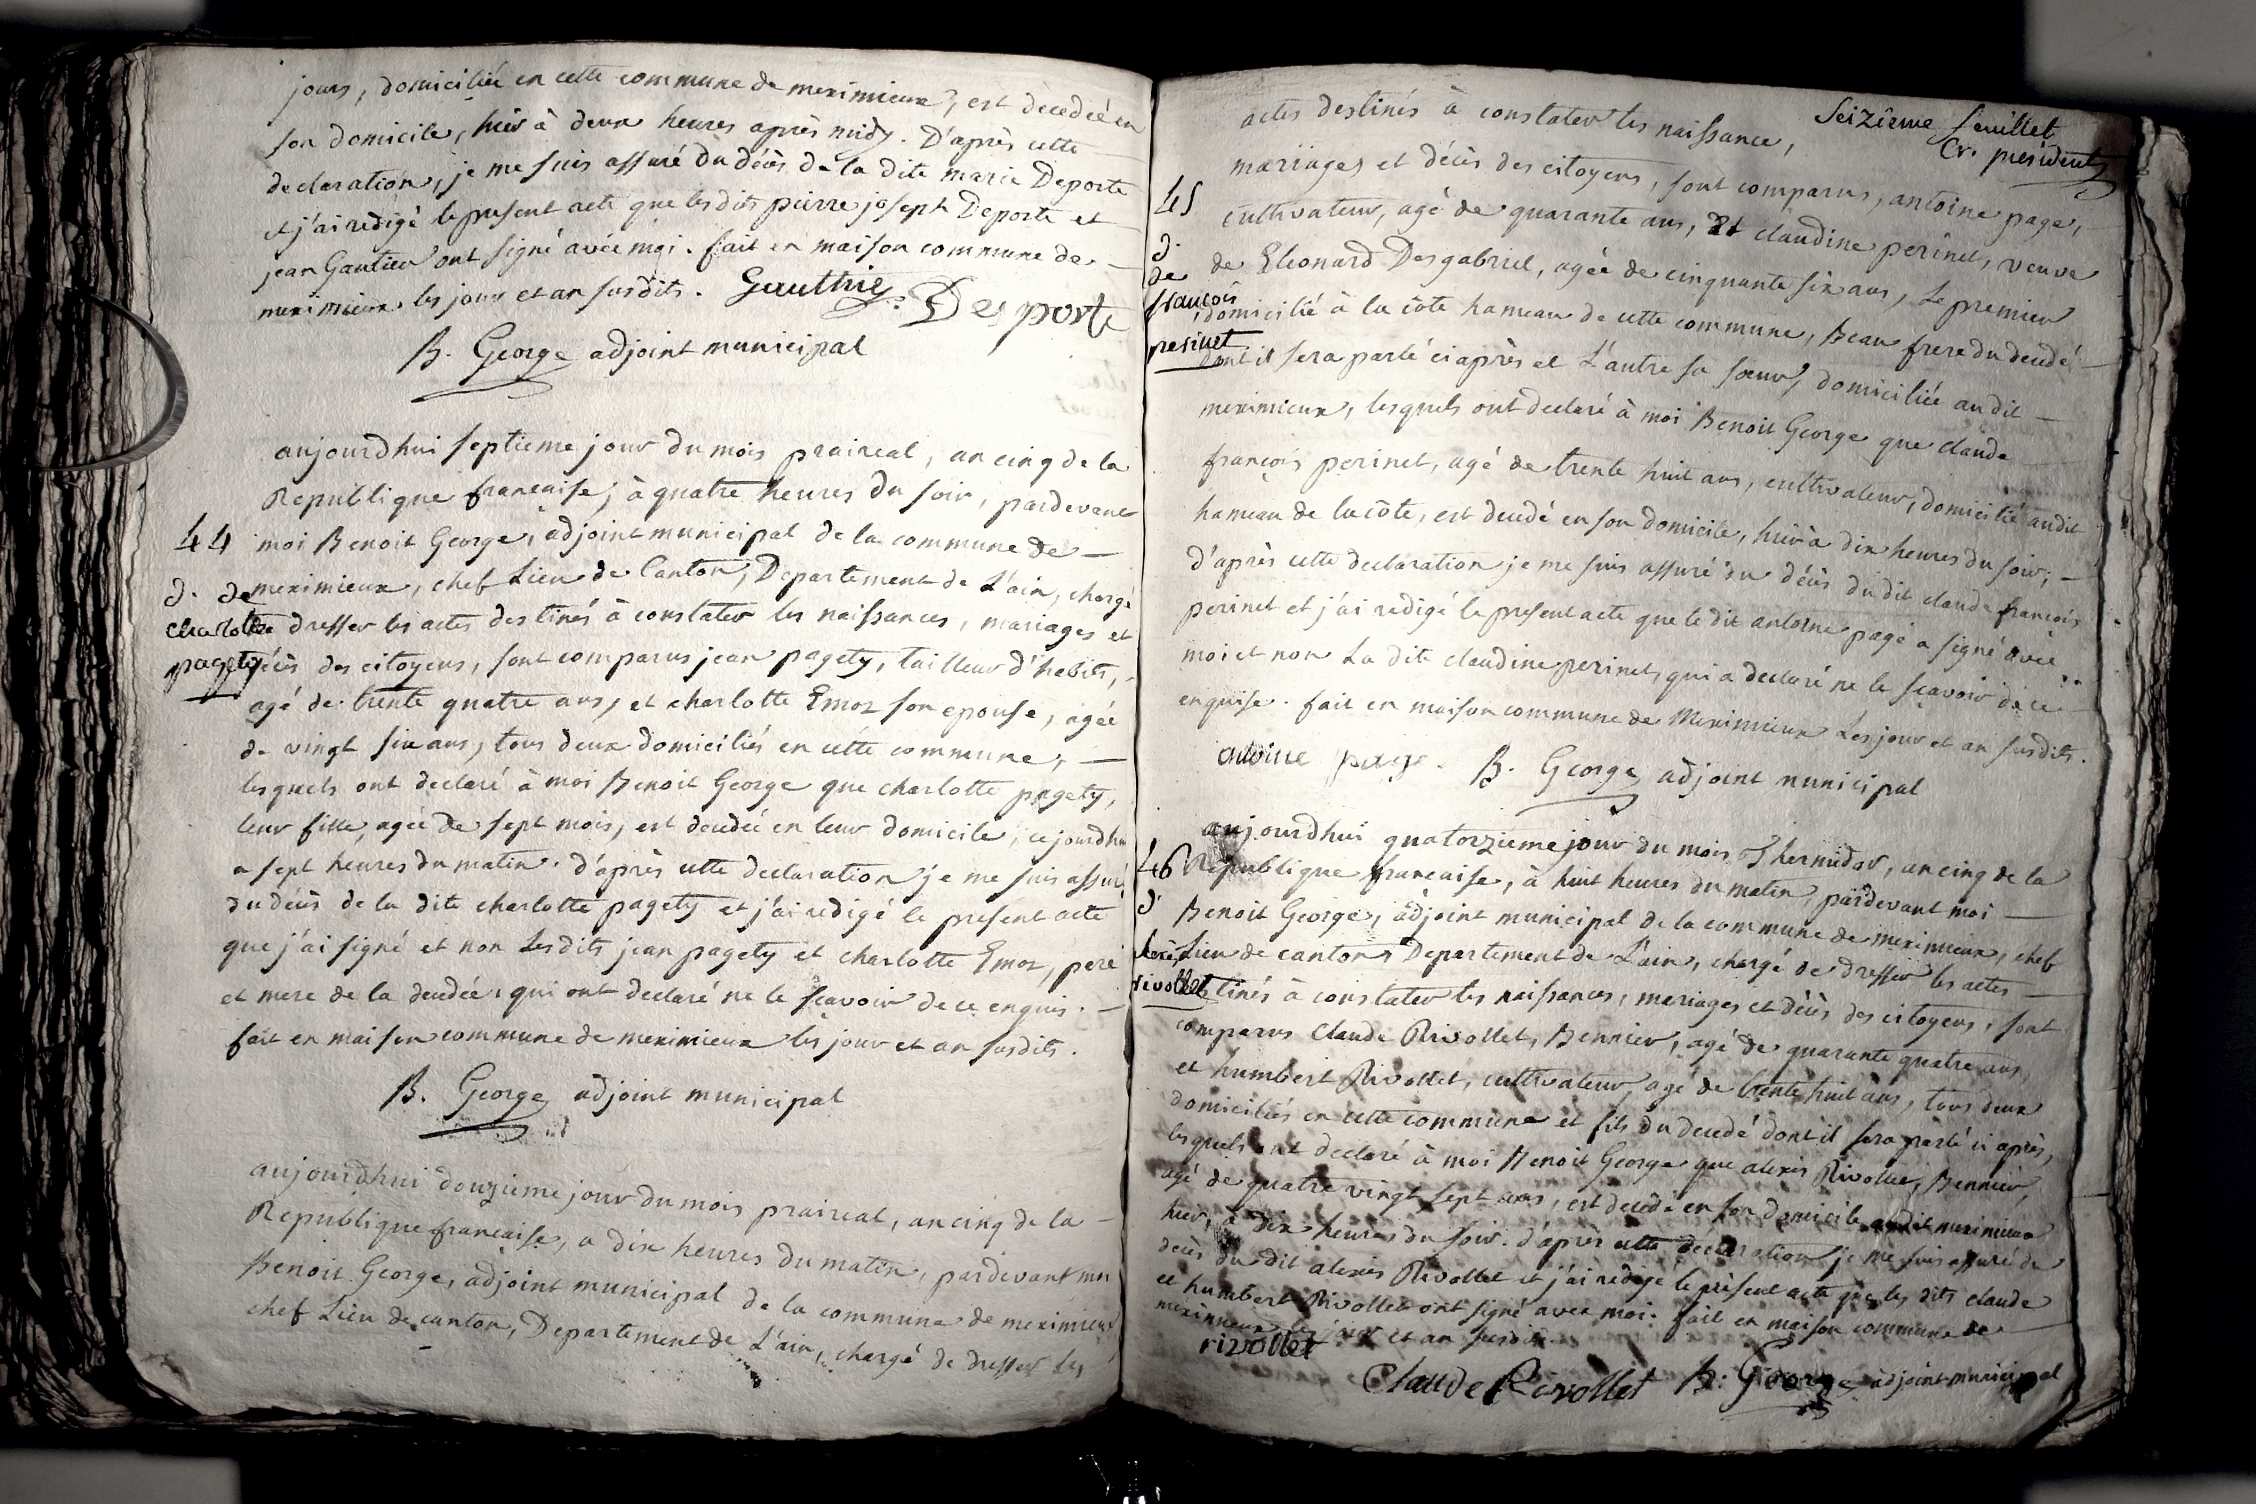 jours, domiciliée en cette commune de meximieux, est décedée en
son domicile, hier à deux heures après midy. D'après cette
declaration, je me suis assuré du décès de la dite marie Deporte
et j'ai redigé le present acte que lesdits pierre joseph Deporte et
jean Gautier ont signé avec moi. fait en maison commune de
meximieux les jour et an susdits. Gauthier Desporte
B. George adjoint municipal
aujourdhui septieme jour du mois praireal, an cinq de la
Republique francaise, à quatre heures du soir, pardevant
44 moi Benoit George, adjoint municipal de la commune de
d. de meximieux, chef Lieu de Canton, Departement de L'ain, chargé
charlotte de dresser les actes destinés à constater les naissances, mariages et
pagety décès des citoyens, sont comparus jean pagety, tailleur d'habits,
agé de trente quatre ans, et charlotte Emoz son epouse, agée
de vingt six ans, tous deux domiciliés en cette commune,
lesquels ont declaré à moi Benoit George que charlotte pagety,
leur fille, agée de sept mois, est decedée en leur domicile, cejourdhui
a sept heures du matin. d'après cette declaration je me suis assuré
du décès de la dite charlotte pagety et j'ai redigé le present acte
que j'ai signé et non lesdits jean pagety et charlotte Emoz, pere
et mere de la decedée, qui ont declaré ne le sçavoir de ce enquis.
fait en maison commune de meximieux les jour et an susdits.
B. George adjoint municipal
aujourdhui douzieme jour du mois praireal, an cinq de la
Republique francaise, a dix heures du matin, pardevant moi
Benoit George, adjoint municipal de la commune de meximieux
chef Lieu de canton, Departement de L'ain, chargé de dresser les
Seizième feuillet
Cr. president
actes destinés à constater les naissance,
mariages et décès des citoyens, sont comparus, antoine page,
45 cultivateur, agé de quarante ans, Et claudine perinet, veuve
d. de de Eleonard Desgabriel, agée de cinquante six ans, Le premier
francois domicilié à la côte hameau de cette commune, Beau frere du decedé
perinet dont il sera parlé ci après et L'autre sa sœur, domiciliée audit
meximieux, lesquels ont declaré à moi Benoit George que claude
françois perinet, agé de trente huit ans, cultivateur, domicilié audit
hameau de la côte, est decedé en son domicile, hier à dix heures du soir;
d'après cette declaration je me suis assuré du décès dudit claude françois
perinet et j'ai redigé le present acte que le dit antoine page a signé avec
moi et non La dite claudine perinet, qui a declaré ne le sçavoir de ce
enquise. fait en maison commune de Meximieux Les jour et an susdits.
antoine page. B. George adjoint municipal
aujourdhui quatorzieme jour du mois Thermidor, an cinq de la
46 Republique francaise, à huit heures du matin, pardevant moi
d' Benoit George, adjoint municipal de la commune de meximieux, chef
alexis Lieu de canton, Departement de L'ain, chargé de dresser les actes
rivollet destinés à constater les naissances, mariages et décès des citoyens, sont
comparus Claude Rivollet, Bennier, agé de quarante quatre ans,
et humbert Rivollet, cultivateur, agé de trente huit ans, tous deux
domiciliés en cette commune et fils du decedé dont il sera parlé ci après,
lesquels ont declaré à moi Benoit George que alexis Rivollet, Bennier,
agé de quatre vingt sept ans, est decedé en son domicile audit meximieux
hier, à dix heures du soir. d'après cette declaration je me suis assuré du
décès du dit alexis Rivollet et j'ai redigé le présent acte que les dits claude
et humbert Rivollet ont signé avec moi. fait en maison commune de
meximieux les jour et an susdits.
rivollet
Claude Rivollet B. George adjoint municipal